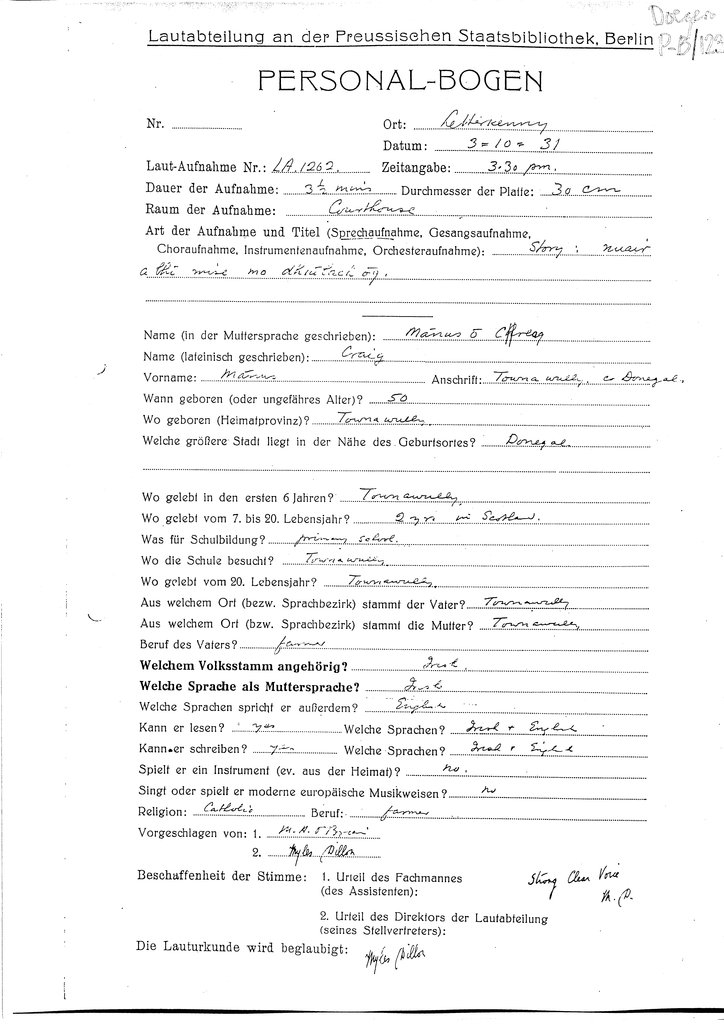 Doegen
Lautabteilung an der Preussischen Staatsbibliothek, Berlin
PERSONAL-BOGEN
Nr. Ort: Letterkenny
Datum: 3=10=31
Laut-Aufnahme Nr.: LA.1262. Zeitangabe: 3.30 pm.
Dauer der Aufnahme: 3½ mins Durchmesser der Platte: 30 cm
Raum der Aufnahme: Courthouse
Art der Aufnahme und Titel (Sprechaufnahme, Gesangsaufnahme,
Choraufnahme, Instrumentenaufnahme, Orchesteraufnahme): Story: nuair
a bhí mise mo óg.
Name (in der Muttersprache geschrieben): Mánus Ó
Name (lateinisch geschrieben): Craig
Vorname: Mánus Anschrift: Townawully, co Donegal.
Wann geboren (oder ungefähres Alter)? 50
Wo geboren (Heimatprovinz)? Townawully
Welche größere Stadt liegt in der Nähe des Geburtsortes? Donegal
Wo gelebt in den ersten 6 Jahren? Townawully
Wo gelebt vom 7. bis 20. Lebensjahr? 2 yrs in Scotland.
Was für Schulbildung? primary school.
Wo die Schule besucht? Townawully
Wo gelebt vom 20. Lebensjahr? Townawully
Aus welchem Ort (bezw. Sprachbezirk) stammt der Vater? Townawully
Aus welchem Ort (bzw. Sprachbezirk) stammt die Mutter? Townawully
Beruf des Vaters? farmer
Welchem Volksstamm angehörig? Irish.
Welche Sprache als Muttersprache? Irish
Welche Sprachen spricht er außerdem? English
Kann er lesen? yes Welche Sprachen? Irish + English
Kann er schreiben? yes Welche Sprachen? Irish + English
Spielt er ein Instrument (ev. aus der Heimat)? no.
Singt oder spielt er moderne europäische Musikweisen? no
Religion: Catholic Beruf: farmer
Vorgeschlagen von: 1.
2. Myles Dillon
Beschaffenheit der Stimme: 1. Urteil des Fachmannes Strong Clear Voice
(des Assistenten): M.D.
2. Urteil des Direktors der Lautabteilung
(seines Stellvertreters):
Die Lauturkunde wird beglaubigt: Myles Dillon